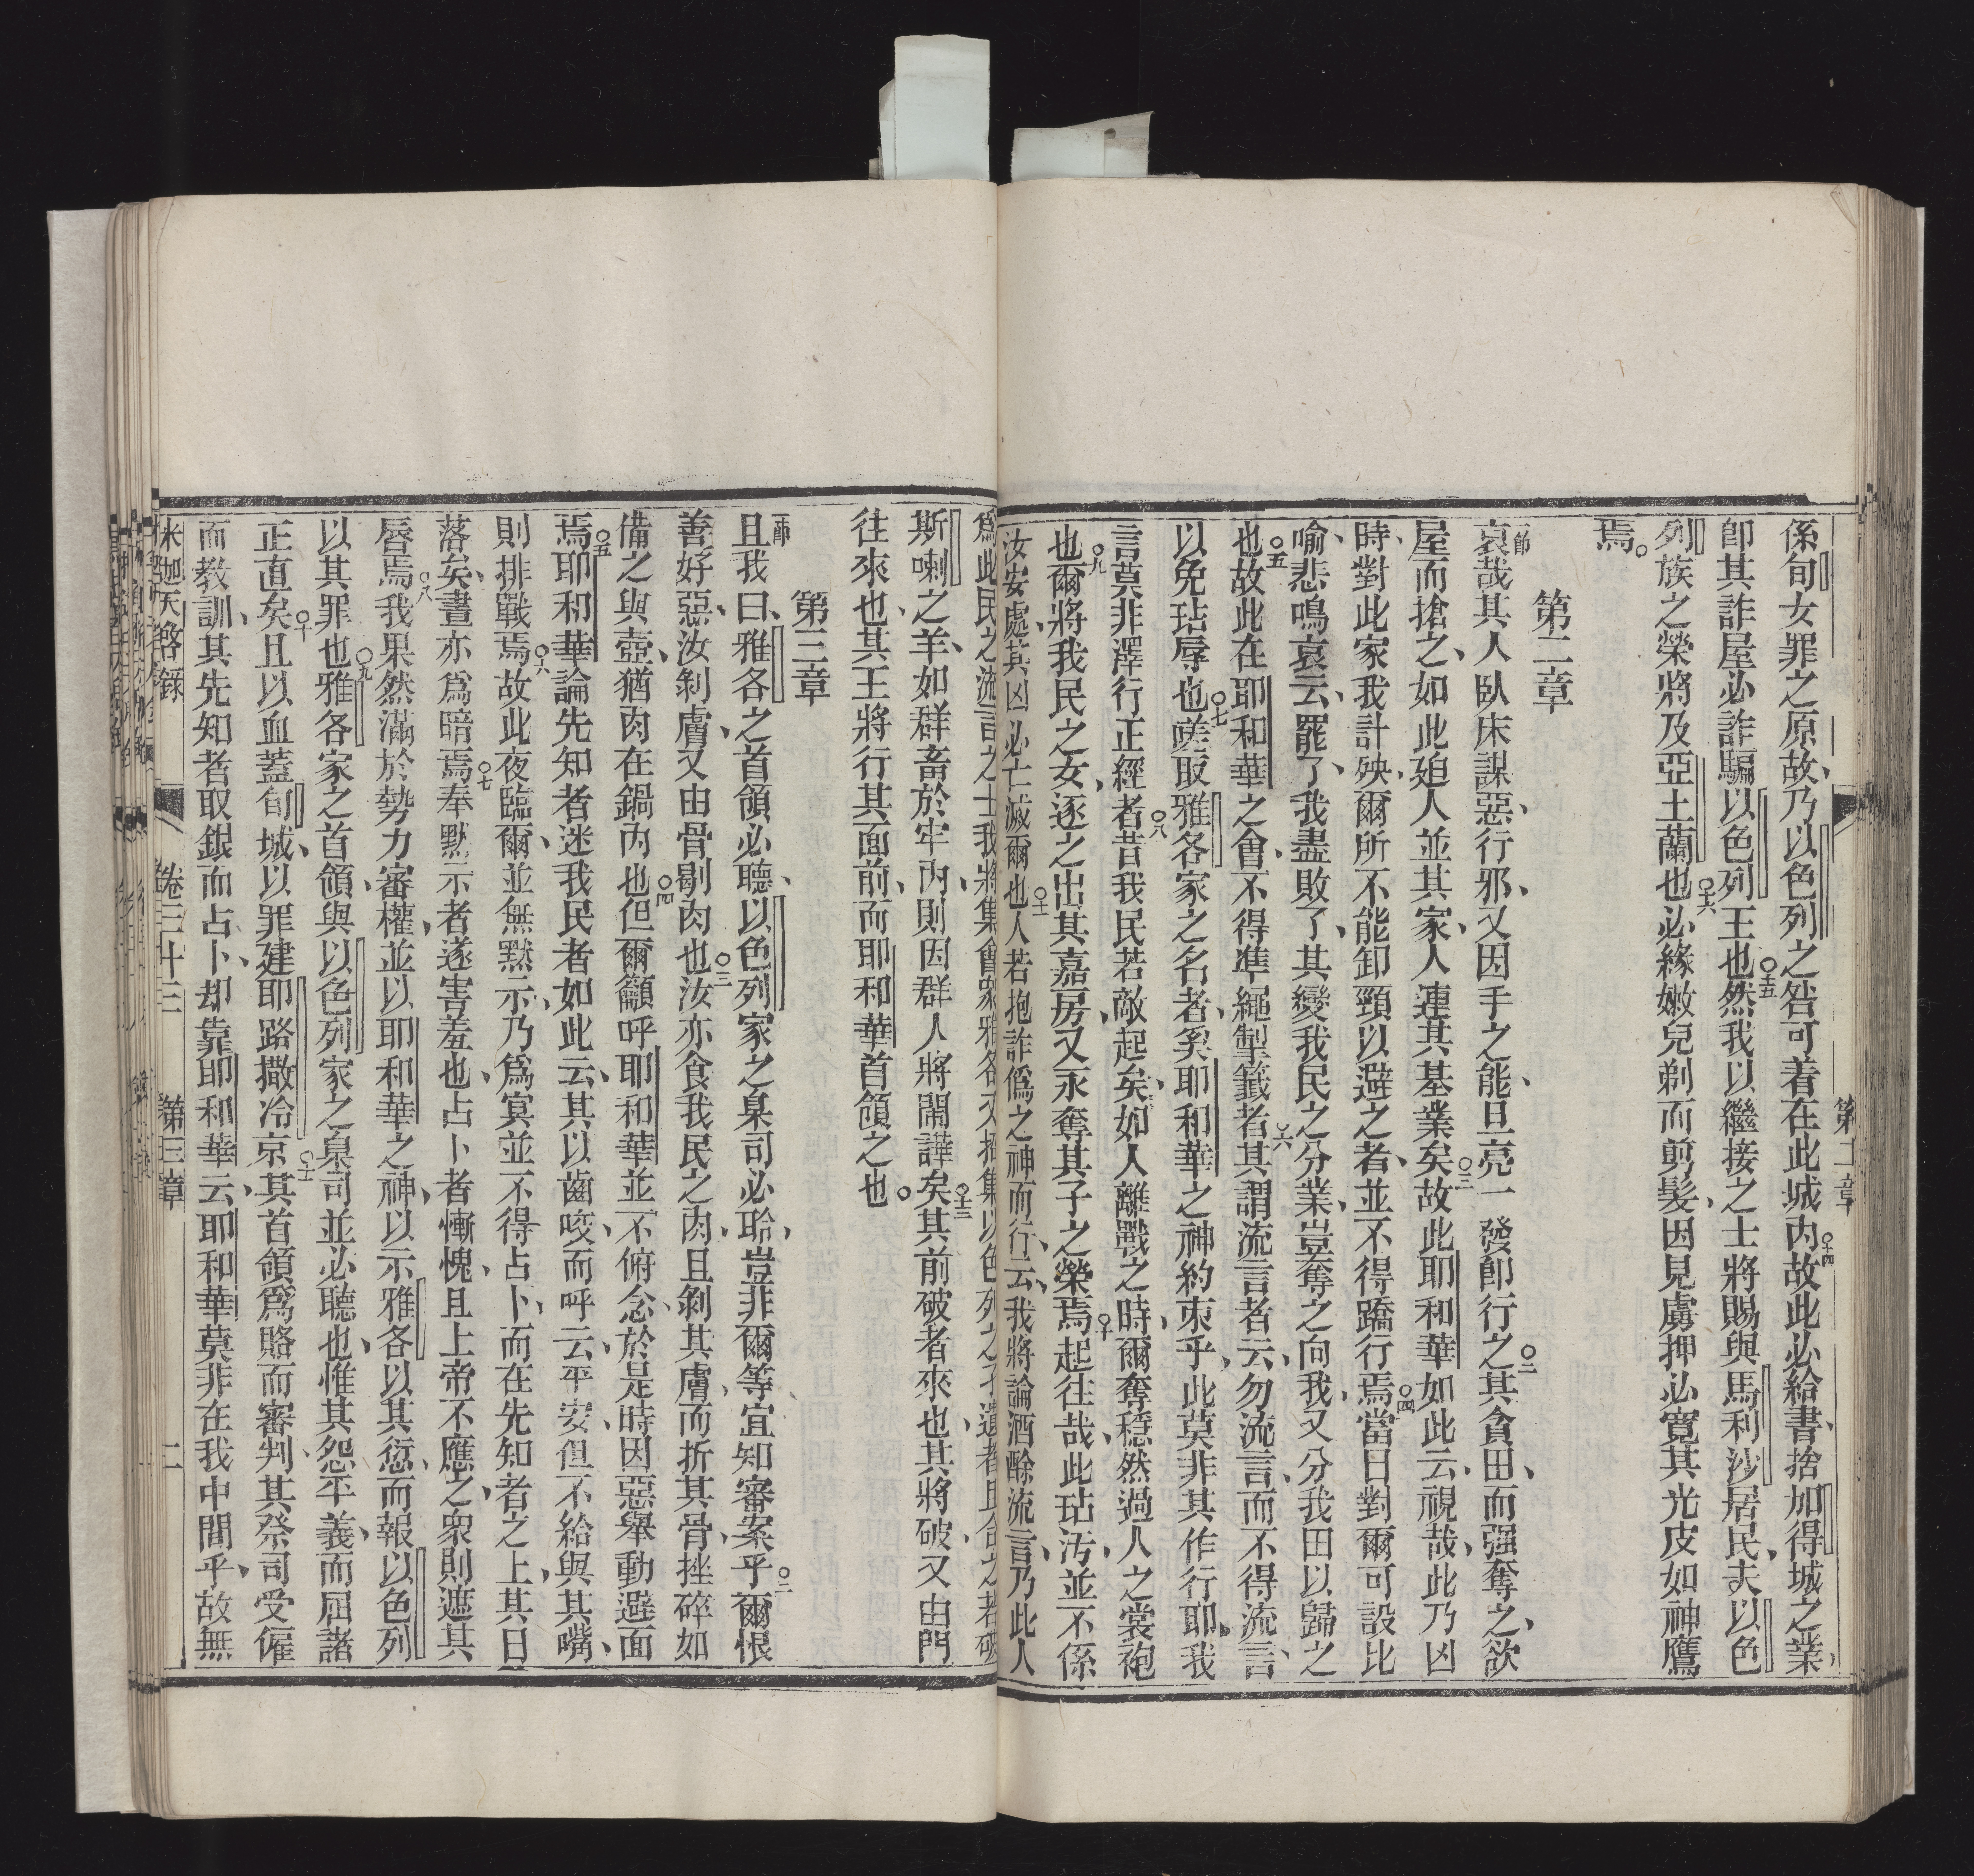 第二章
係旬女罪之原故、乃以色列之咎可着在此城內○十四故此必給書、捨加得城之業、
卽其詐屋必詐騙以色列王也○十五然我以繼接之士將賜與馬利沙居民、夫以色
列族之榮將及亞土蘭也○十六必緣嫩兒剃而剪髮、因見虜押必寬其光皮如神鷹
焉。
第二章
一節哀哉其人臥床謀惡、行邪、又因手之能、旦亮一發卽行之○二其貪田、而强奪之、欲
屋而搶之、如此廹人並其家、人連其基業矣○三故此耶和華如此云、視哉、此乃凶
時、對此家我計殃、爾所不能卸頸以避之者、並不得蹻行焉○四當日對爾可設比
喻、悲鳴哀云、罷了、我盡敗了、其變我民之分業、豈奪之向我、又分我田以歸之
也○五故此在耶和華之會、不得準繩掣籤者○六其謂流言者云、勿流言、而不得流言、
以免玷辱也○七嗟取雅各家之名者、奚耶和華之神約束乎、此莫非其作行耶、我
言莫非澤行正經者○八昔我民若敵起矣、如人離戰之時、爾奪穩然過人之裳袍
也○九爾將我民之女、逐之出其嘉房、又永奪其子之榮焉○十起往哉、此玷汚、並不係
汝安處、其凶必亡滅爾也○十一人若抱詐僞之神而行、云、我將論酒酴流言、乃此人
爲此民之流言之士
斯喇之羊、如群畜於牢內、則因群人將鬧譁矣○十三其前破者來也、其將破、又由門
往來也、其王將行其面前、而耶和華首領之也。
第三章
一節且我曰、雅各之首領必聽、以色列家之臬司必聆、豈非爾等宜知審案乎○二爾恨
善好惡、汝剝膚、又由骨剔肉也○三汝亦食我民之肉、且剝其膚、而折其骨、挫碎如
備之與壺、猶肉在鍋內也○四但爾籲呼耶和華、並不俯念、於是時因惡舉動避面
焉○五耶和華論先知者迷我民者、如此云、其以齒咬、而呼云、平安、但不給與其嘴、
則排戰焉○六故此夜臨爾、並無默示、乃爲寞、並不得占卜、而在先知者之上、其日
落矣、晝亦爲暗焉○七奉默示者遂害羞也、占卜者慚愧、且上帝不應之、衆則遮其
唇焉○八我果然滿於勢力審權、並以耶和華之神、以示雅各以其愆、而報以色列
以其罪也○九雅各家之首領、與以色列家之臬司並必聽也、惟其怨平義、而屈諸
正直矣○十且以血蓋旬城、以罪建耶路撒冷京○十一其首領爲賂而審判、其祭司受僱
而教訓、其先知者取銀而占卜、却靠耶和華云、耶和華莫非在我中間乎、故無
米迦天啓錄 卷三十三 第三章 二